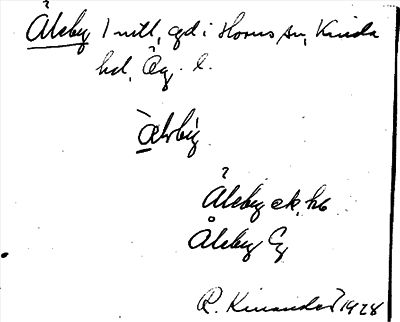 Ålsby 1 mtl, gd i Horns sn, Kinda
hd, Ög. l.
Ålsby ek, hb
Ålsby G
R. Kinander 1928